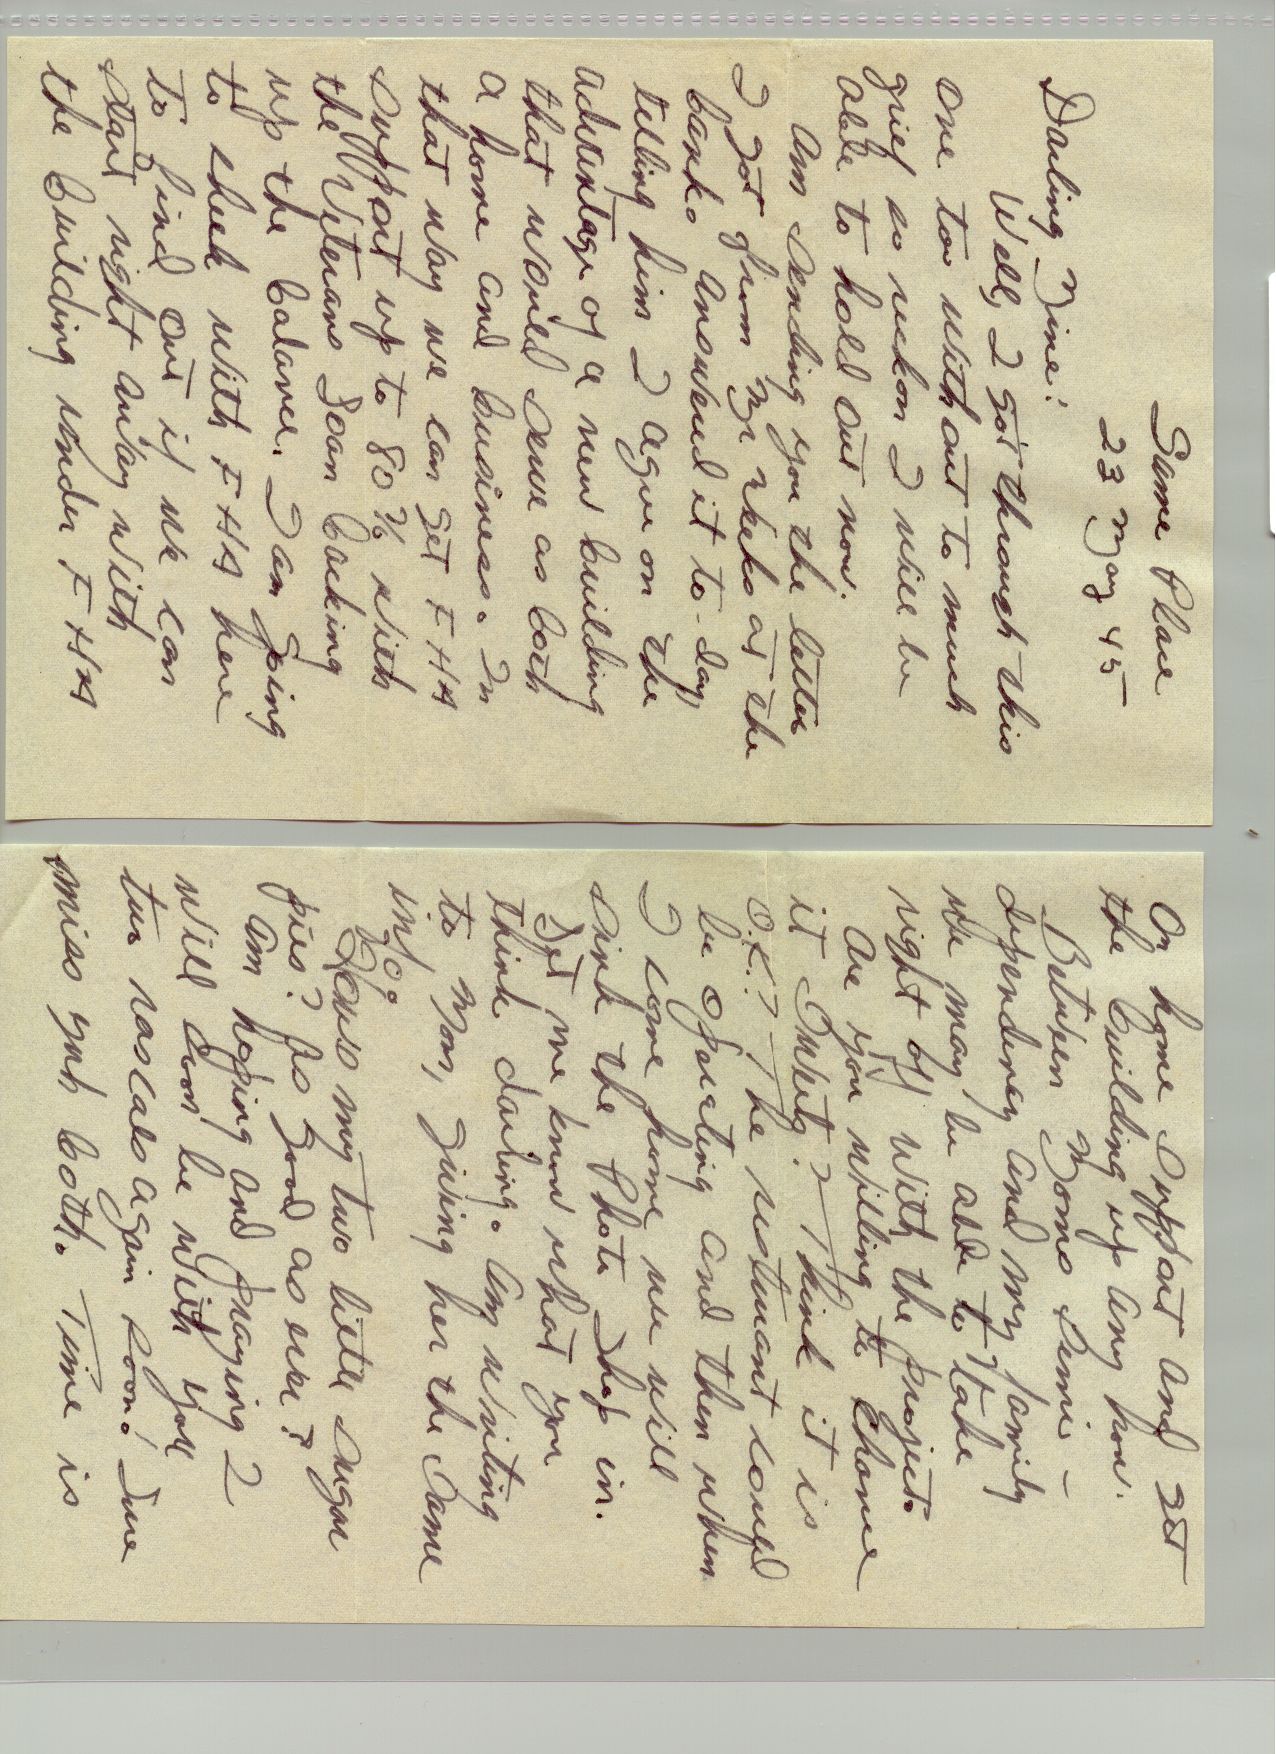 Same Place
23 May 45
Darling Mine:
Well, I got through this
one too without to much
grief so reckon I will be
able to hold out now.
Am sending you the letter
I got from Mr. at the
bank. Answered it to-day,
telling him I agree on the
advantage of a new building
that would serve as both
a home and business. In
that way we can get FHA
support up to 80% with
the Veterans Loan backing
up the balance. I am going
to check with FHA here
to find out if we can
start right away with
the building under FHA
on home support and get
the building up any how.
Between Moms &
dependency and my family
we may be able to take
right off with the project.
Are you willing to chance
it Sweets? Think it is
O.K.? The resturant could
be operating and then when
I come home we will
sink the Photo Shop in.
Let me know what you
think darling. Am writing
to Mom, giving her the same
info.
Hows my two little sugar
pies? As good as ever?
Am hoping and praying I
will soon be with you
two rascals again soon! Sure
miss yuh both. Time is